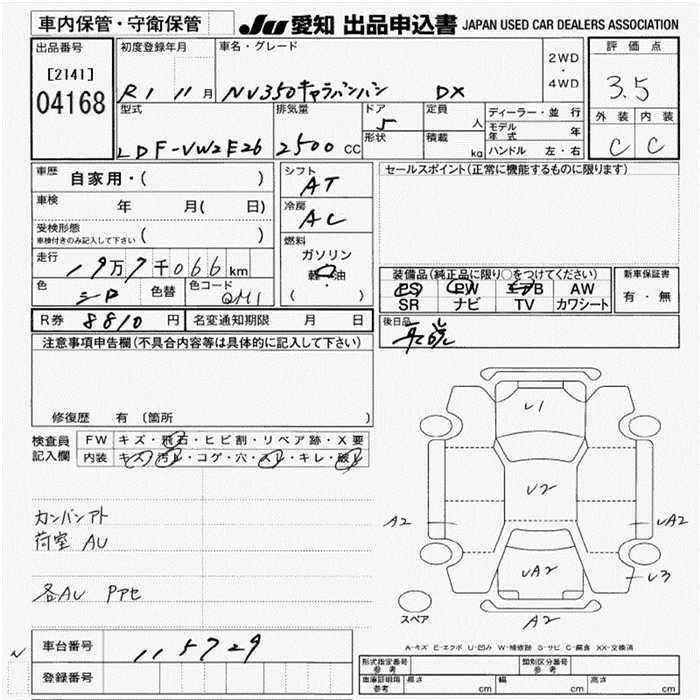 車内保管・守衛保管
JU 愛知 出品申込書 JAPAN USED CAR DEALERS ASSOCIATION
出品番号 初度登録年月 車名・グレード 評価点
[2141]
04168
R1 11月 NV350キャラバンバン DX
2WD
・
4WD
3.5
外装 内装
C C
型式 排気量 ドア 定員 ディーラー・並行
LDF-VW2E26 2500 CC 5 人
モデル年式 年
形状 積載 kg ハンドル 左・右
車歴 自家用・( )
シフト AT
セールスポイント(正常に機能するものに限ります)
車検 年 月( 日)
冷房 AC
受検形態 ( )
車検付きのみ記入して下さい
燃料
ガソリン
軽油
・
( )
走行 19万7千066km
色 シロ 色替 色コード QM1
装備品(純正品に限り○をつけてください) 新車保証書
PS PW エアB AW 有・無
SR ナビ TV カワシート
R券 8810円 名変通知期限 月 日
後日品
注意事項申告欄(不具合内容等は具体的に記入して下さい)
修復歴 有(箇所
検査員 FW キズ・飛石・ヒビ割・リペア跡・X要
記入欄 内装 キズ・汚れ・コゲ・穴・スレ・キレ・破れ
カンバンアト
荷室 AU
各AU PPセ
U1
U2
A2
UA2
UA2
U3
A2
スペア
A-キズ E-エクボ U-凹み W-補修跡 S-サビ C-腐食 XX-交換済
N
車台番号 115729
登録番号
形式指定番号 参考 類別区分番号 参考
車庫証明 参考 長さ cm 幅 cm 高さ cm